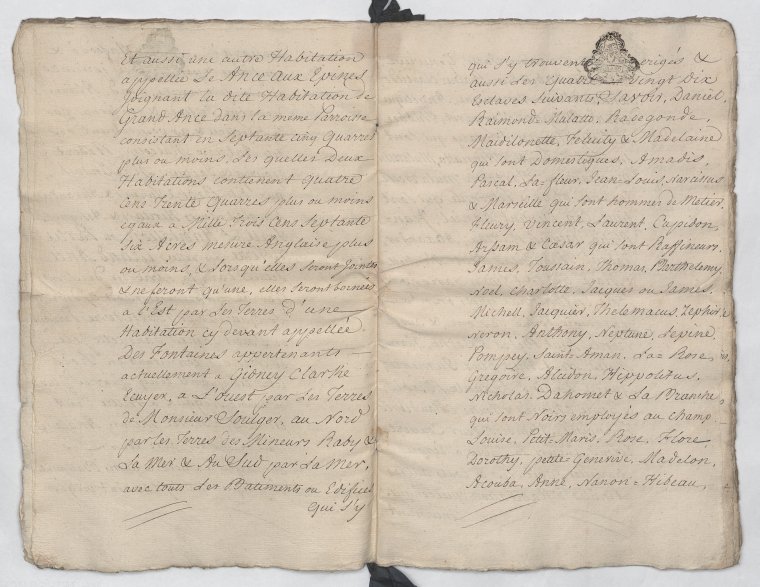 Et aussi une autre Habitation
appellée Le Ance aux Epines
Joignant la dite Habitation de
Grand Ance dans la même Parroisse
consistant en Septante cinq Quarrés
plus ou moins, Les quelles Deux
Habitations contienent Quatre
Cens Trente Quarrés plus ou moins
egaux a Mille Trois Cens Septante
Six Acres mesure Anglaise plus
ou moins, & Lorsqu'elles seront Jointes
& ne feront qu'une, elles seront bornées
a L'Est par Les Terres d'une
Habitation cy devant appellée
Des Fontaines appertenants
actuellement a Gidney Clarke
Ecuyer, a L'Ouest par Les Terres
de Monsieur Soulger, au Nord
par Les Terres des Mineurs Raby &
La Mer & Au Sud par La Mer,
avec touts Les Batiments ou Edifices
qui s'y
qui s'y trouvent erigés &
aussi Les Quatre Vingt Dix
Esclaves Suivants, Savoir, Daniel,
Raimond=Mulatte, Rasegonde,
Maidilonette, Felicity & Madelaine
qui sont Domesteques, Amadis,
Pascal, La=fleur, Jean=Louis, Narcissus
& Marseille qui sont hommes de Metier,
Fleury, Vincent, Laurent, Cupidon,
Arsam & Cæsar qui sont Raffineurs.
James, Toussain, Thomas, Barthelemy,
Noel, Charlotte, Jacques ou James,
Michell, Jacquier, Thelemacus, Zephire
Neron, Anthony, Neptune, Lepine,
Pompey, Saint=Aman, La=Rose,
Gregoire, Alcidon, Hippolitus,
Nicholas, Dahomet & La Branche,
qui sont Noirs employés au champ
Louise, Petit=Maris, Rose, Flore
Dorothy, petite=Genevive, Madelon,
Acouba, Anne, Nanon=Hibeau,